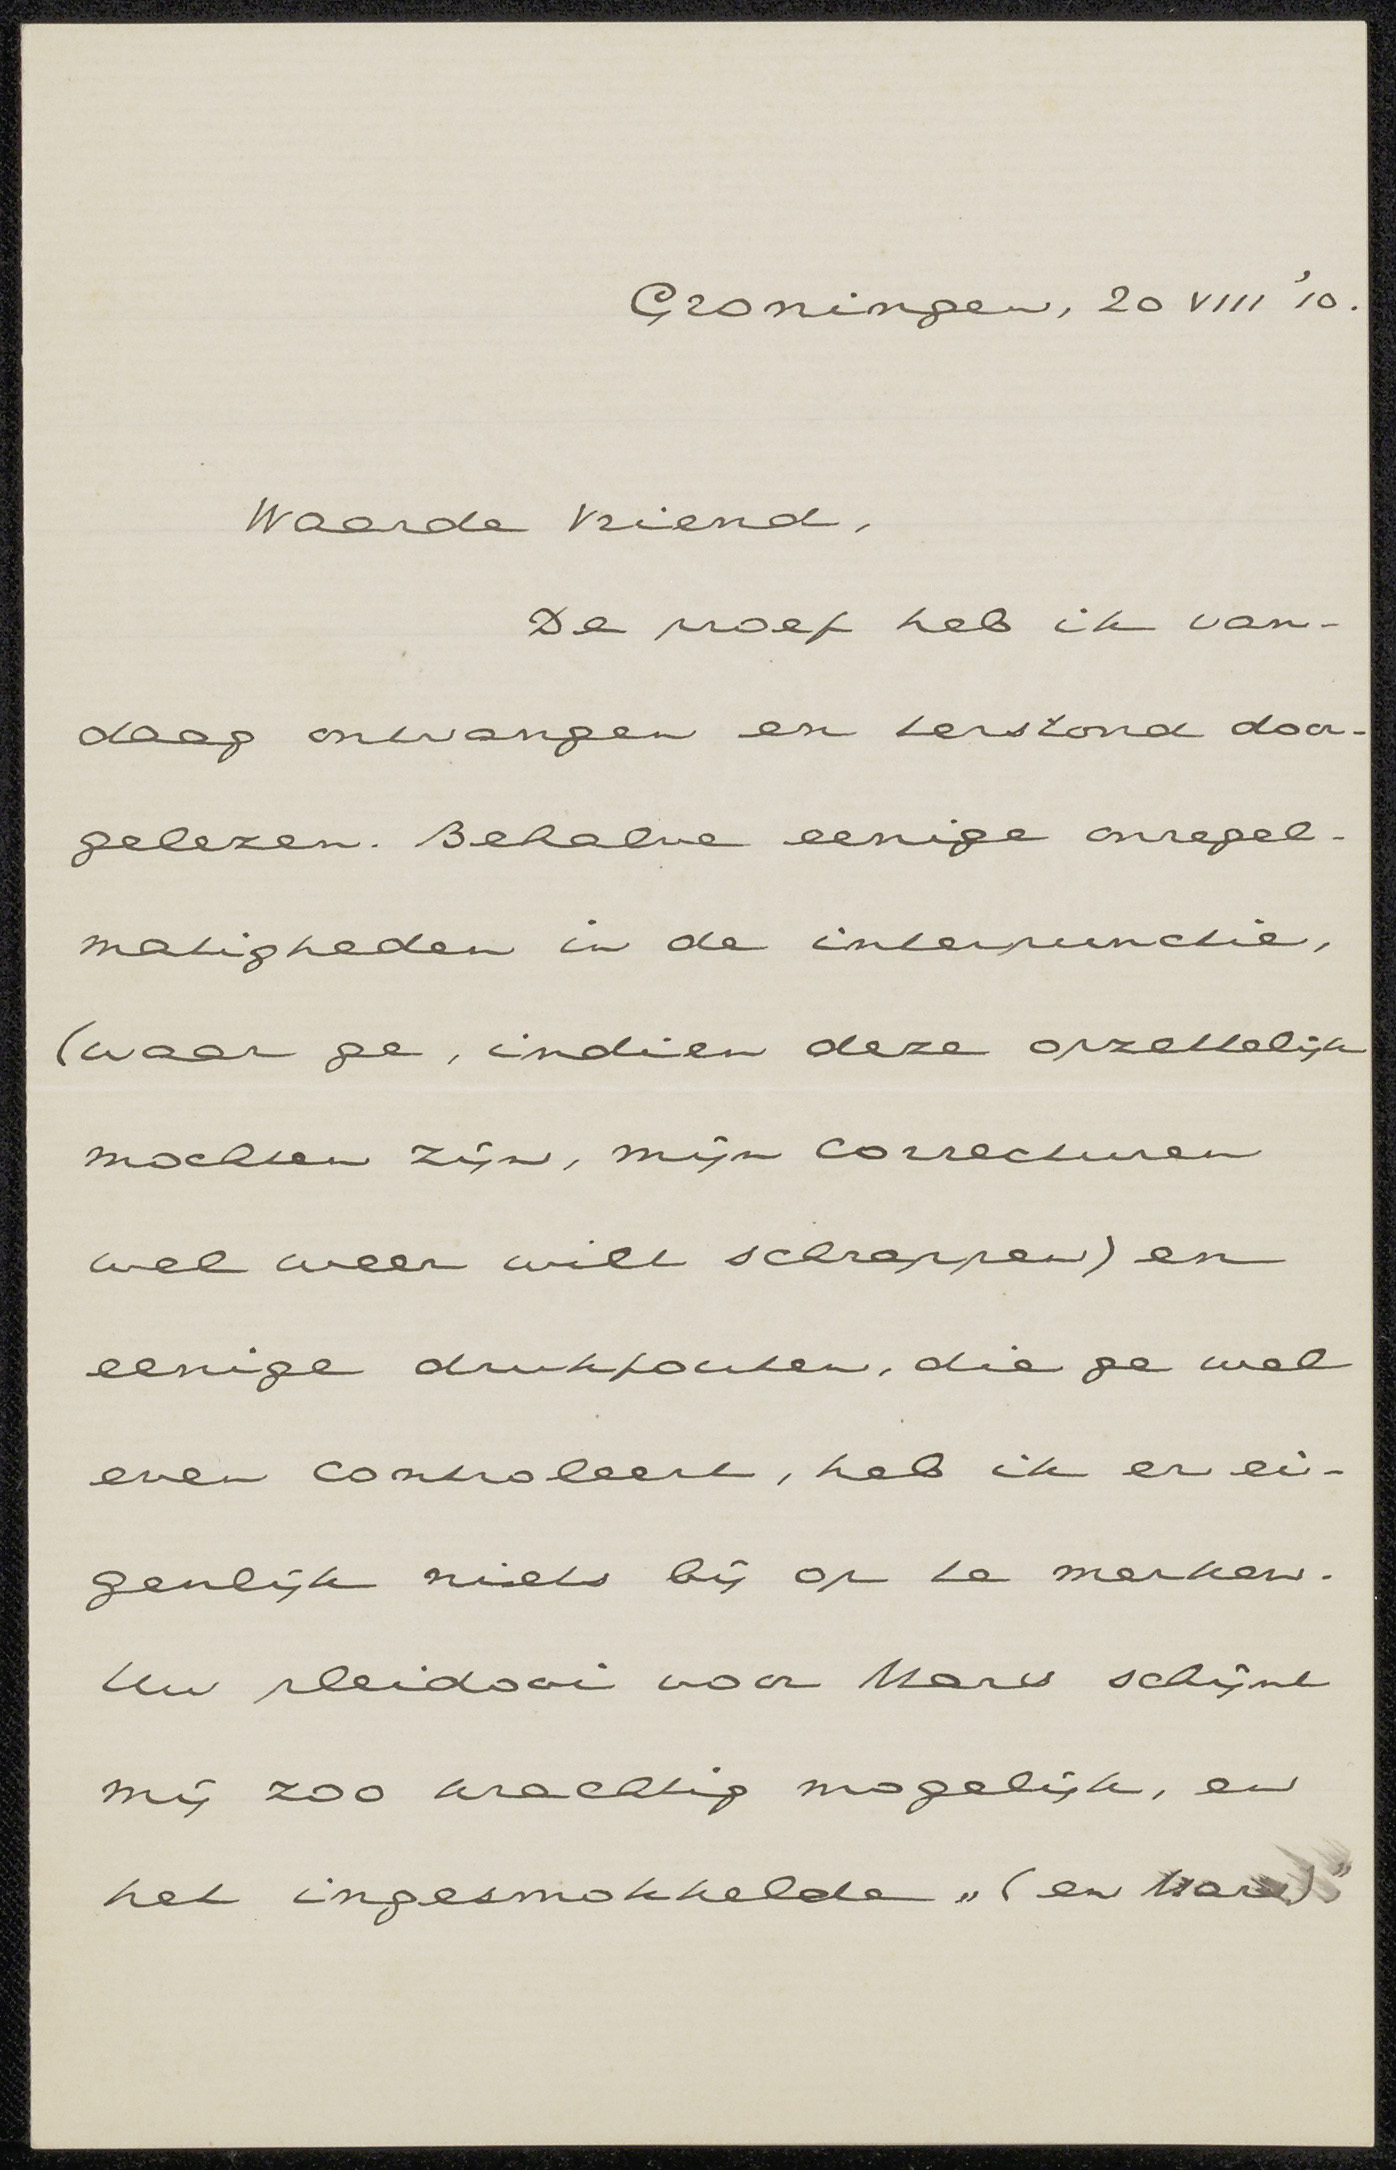 Groningen, 20 VIII '10.
Waarde Vriend,
De proef heb ik van-
daag ontvangen en terstond door-
gelezen. Behalve eenige onregel-
matigheden in de interpunctie,
(waar ge, indien deze opzettelijk
mochten zijn, mijn correcturen
wel weer wilt schrappen) en
eenige drukfouten, die ge wel
even controleert, heb ik er ei-
genlijk niets bij op te merken.
Uw pleidooi voor Marx schijnt
mij zoo krachtig mogelijk, en
het ingesmokkelde „(en Marx)"